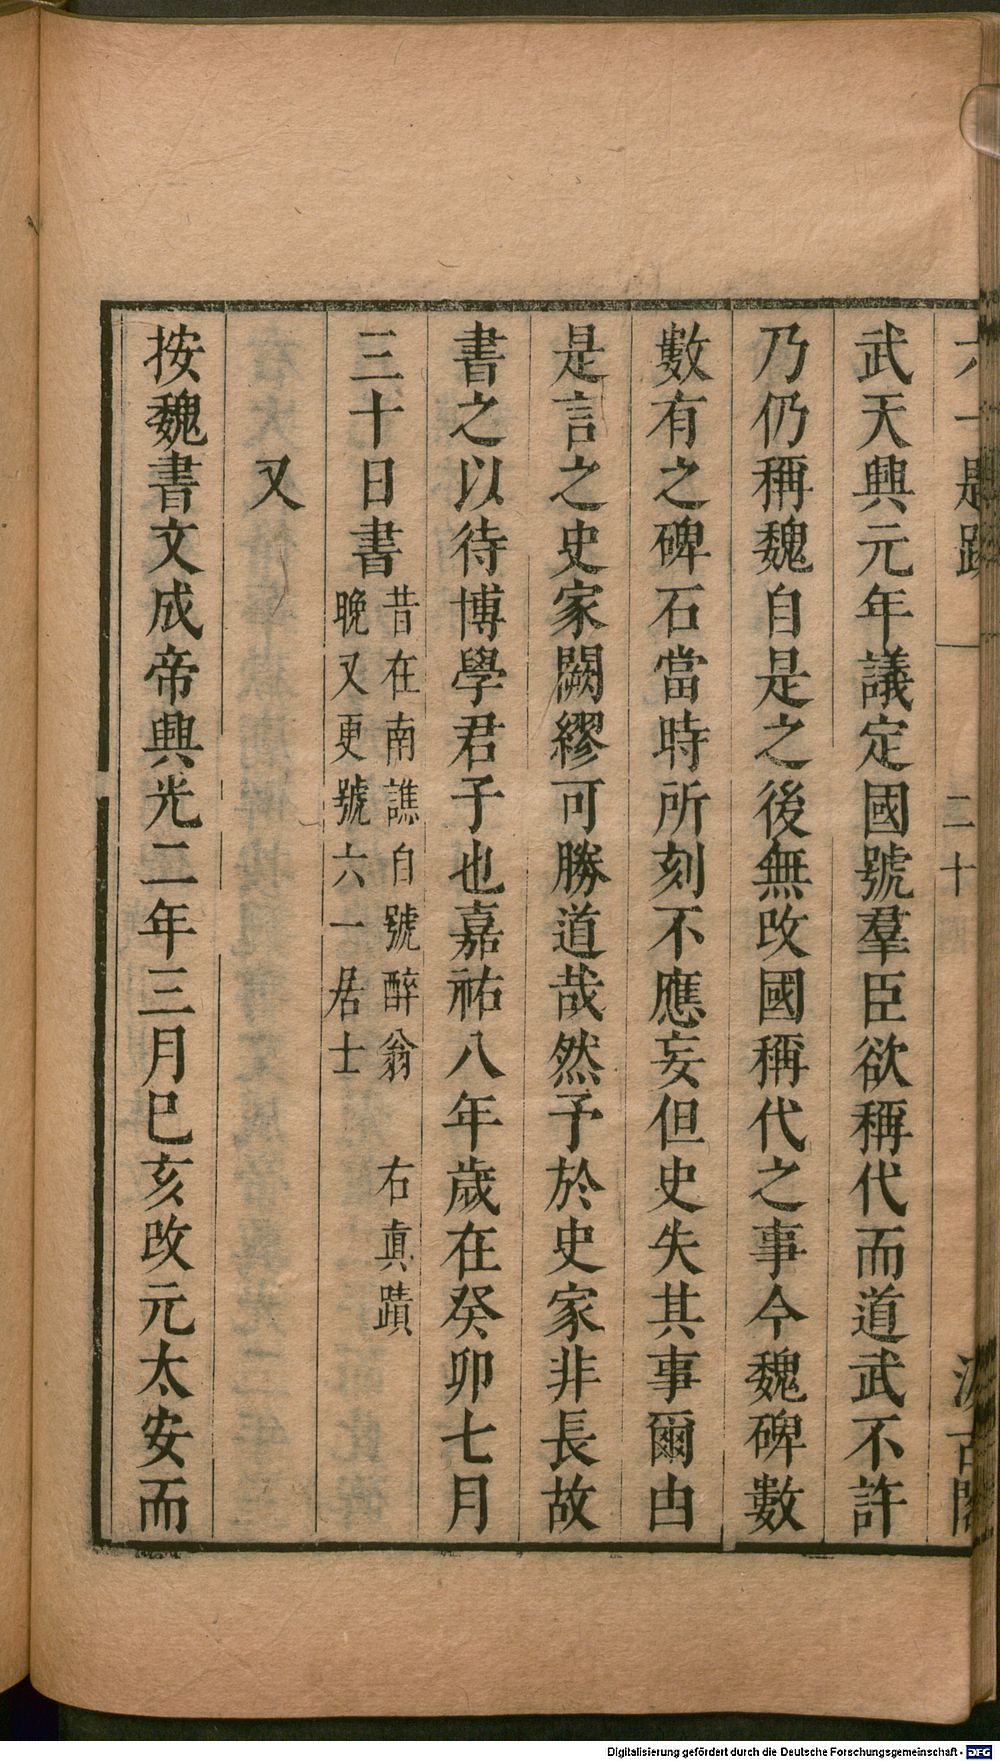 六一題跋
二十
汲古閣
武天興元年議定國號羣臣欲稱代而道武不許
乃仍稱魏自是之後無改國稱代之事今魏碑數
數有之碑石當時所刻不應妄但史失其事爾由
是言之史家闕繆可勝道哉然予於史家非長故
書之以待博學君子也嘉祐八年歲在癸卯七月
三十日書
昔在南譙自號醉翁
晚又更號六一居士
右眞蹟
又
按魏書文成帝興光二年三月巳亥改元太安而
Digitalisierung gefördert durch die Deutsche Forschungsgemeinschaft - DFG